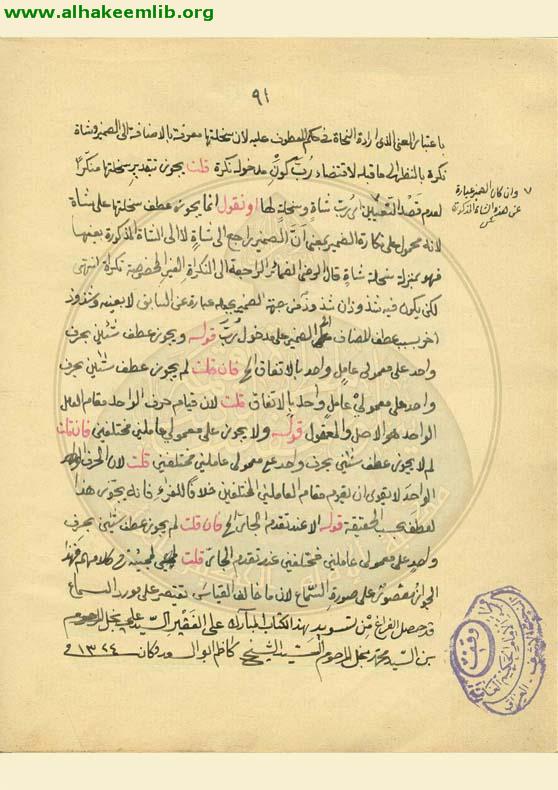 www.alhakeemlib.org
٩١
باعتبار المعنى اى ارادة النحاة فى حكم المعطوف عليه لان سخلتها معرفة بالاضافة الى الضمير وشاة
نكرة بالنظر الى ما قبله لاقتضاء رُبَّ كون مدخوله نكرة قلت يجوز بتقدير سخلتها منكرًا
لعدم قصد التعيين اى رب شاةٍ وسخلة لها او نقول انما يجوز عطف سخلتها على شاة
لانه محمول على نكارة الضمير بمعنى أنّ الضمير راجع الى شاةٍ لا الى الشاة المذكورة بعينها
فهو بمنزلة سخلة شاةٍ قال الرضى الضمائر الراجعة الى النكرة الغير المخصوصة نكرة انتهى
لكن يكون فيه شذوذان شذوذ من جهة الضمير بجعله عبارة عن السابق لا بعينه وشذوذ
آخر بسبب عطف المضاف الى الضمير على مدخول رُبّ قوله ويجوز عطف شيئين بحرف
واحد على معمولى عاملٍ واحد بالاتفاق الخ فان قلت لم يجوز عطف شيئين بحرف
واحد على معمولىْ عامل واحد بالاتفاق قلت لان قيام حرف الواحد مقام العامل
الواحد هو الاصل والمعقول قوله ولا يجوز على معمولى عاملين مختلفين فان قلت
لم لا يجوز عطف شيئين بحرف واحد على معمولى عاملين مختلفين قلت لان الحرف
الواحد لا يقوى ان يقوم مقام العاملين المختلفين خلافًا للفراء فانه يجوّز هذا
العطف بحسب الحقيقة قوله الا عند تقدم الجار الخ فان قلت لم يجوز عطف شيئين بحرف
واحدٍ على معمولى عاملين مختلفين عند تقدم الجار قلت لمجيئه فى كلامهم فهذا
الجواز مقصور على صورة السَّماع لان ما خالف القياس يقتصر على مورد السماع
قد حصل الفراغ من تسويد هذا الكتاب المبارك على الفقير السيد على نجل المرحوم
بن السيد محمد نجل المرحوم السيد الشيخ كاظم ١٣٢٤
وان كان الضمير عبارة
عن هذه الشاة المذكورة